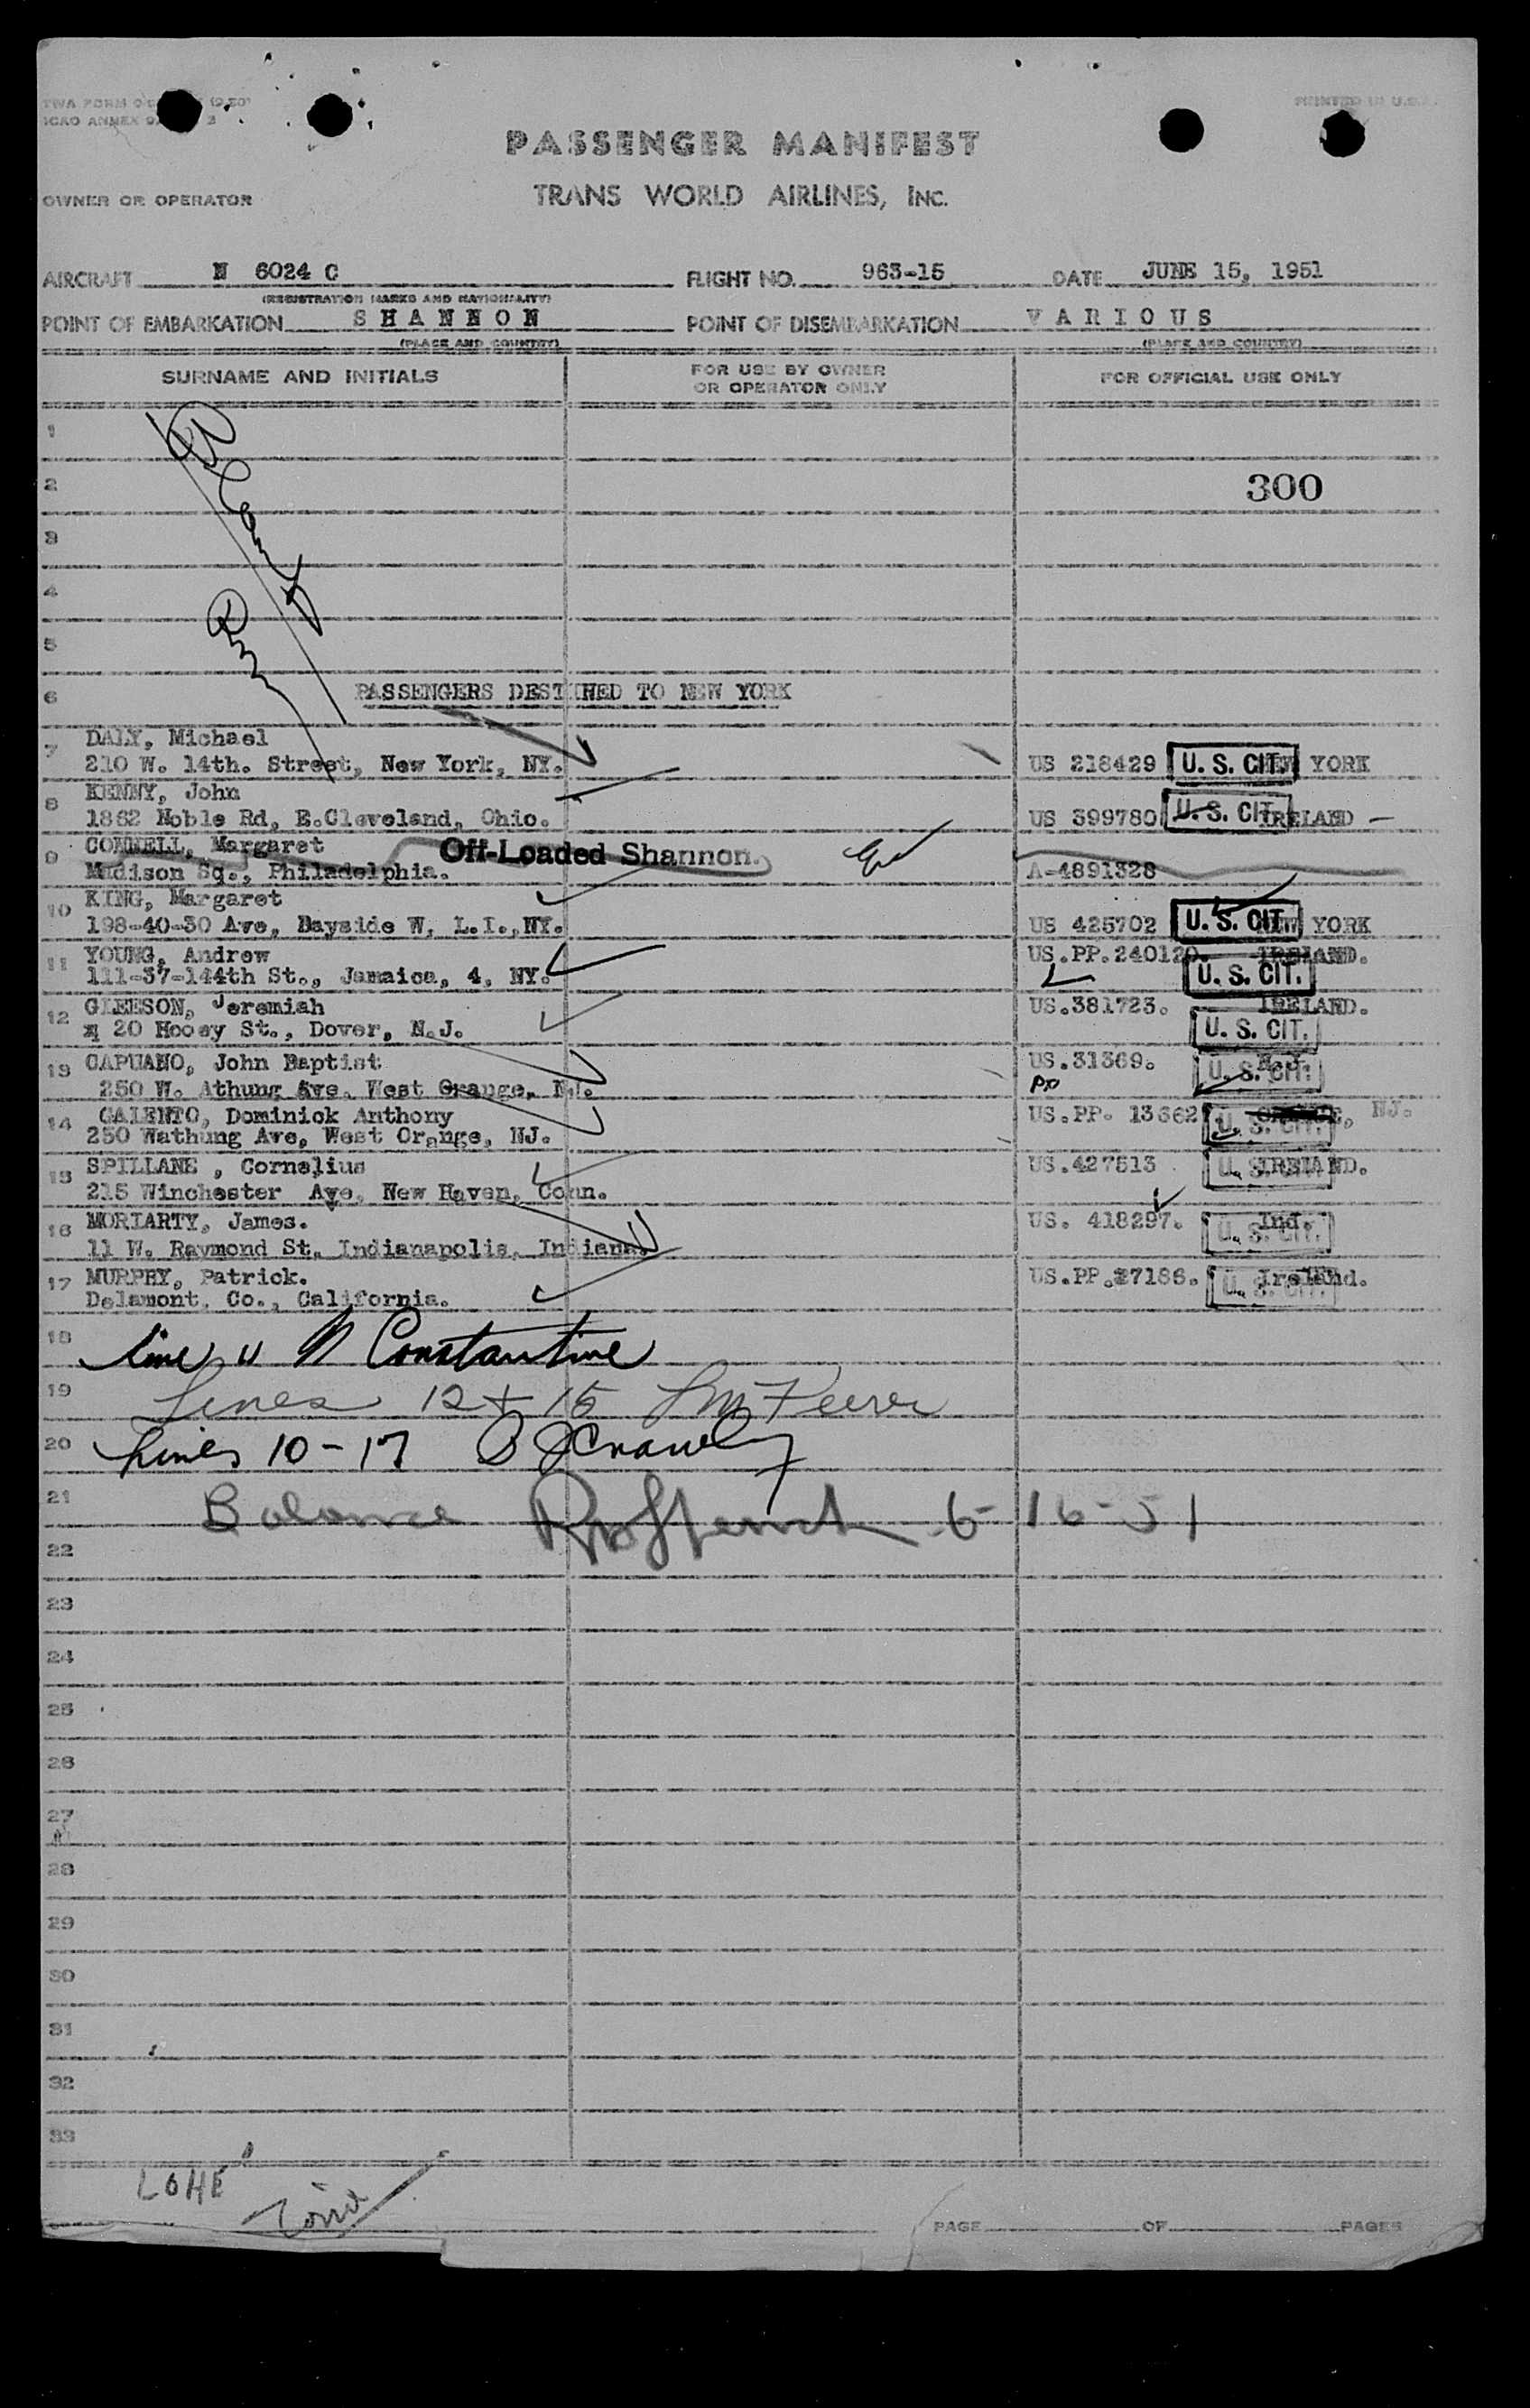 TWA FORM
PRINTED IN U.S.A.
ICAO ANNEX 9
PASSENGER MANIFEST
OWNER OR OPERATOR
TRANS WORLD AIRLINES, INC.
AIRCRAFT N 6024 C FLIGHT NO. 963-15 DATE JUNE 15, 1951
(REGISTRATION MARKS AND NATIONALITY)
POINT OF EMBARKATION SHANNON POINT OF DISEMBARKATION VARIOUS
(PLACE AND COUNTRY) (PLACE AND COUNTRY)
SURNAME AND INITIALS FOR USE BY OWNER OR OPERATOR ONLY FOR OFFICIAL USE ONLY
1
2 300
3
4
5
6 PASSENGERS DESTINED TO NEW YORK
7 DALY, Michael
210 W. 14th. Street, New York, NY. US 218429 U. S. CIT. NEW YORK
8 KENNY, John
1862 Noble Rd, E.Cleveland, Ohio. US 399780 U. S. CIT. IRELAND -
9 CONNELL, Margaret Off-Loaded Shannon.
Madison Sq., Philadelphia. A-4891328
10 KING, Margaret
198-40-30 Ave, Bayside W, L.I.,NY. US 425702 U. S. CIT. NEW YORK
11 YOUNG, Andrew US.PP.240120. IRELAND.
111-37-144th St., Jamaica, 4, NY. U. S. CIT.
12 GLEESON, Jeremiah US.381723. IRELAND.
20 Hooey St., Dover, N.J. U. S. CIT.
13 CAPUANO, John Baptist US.31369. N.J.
250 W. Athung Ave. West Orange, NJ. PP U. S. CIT.
14 GALENTO, Dominick Anthony US.PP. 13662 NJ.
250 Wathung Ave, West Orange, NJ. U. S. CIT.
15 SPILLANE , Cornelius US.427513 IRELAND.
215 Winchester Ave, New Haven, Conn. U. S. CIT.
16 MORIARTY, James. US. 418297. Ind.
11 W. Raymond St, Indianapolis, Indiana. U. S. CIT.
17 MURPHY, Patrick. US.PP.27186. Ireland.
Delamont, Co., California. U. S. CIT.
18 Line 11 N Constantine
19 Lines 12 + 15
20 Lines 10-17 Crawley
21 Balance 6-16-51
22
23
24
25
26
27
28
29
30
31
32
33
LOHE
PAGE OF PAGES